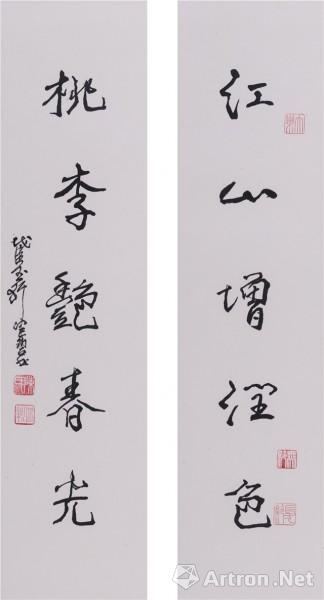 江山增潤色
桃李艷春光
Artron.Net